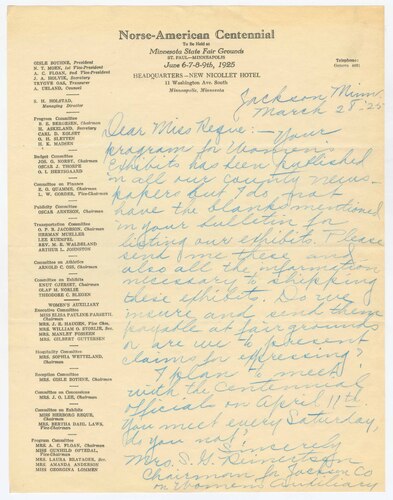 Norse-American Centennial
To Be Held at
Minnesota State Fair Grounds
ST. PAUL—MINNEAPOLIS
June 6-7-8-9th, 1925
HEADQUARTERS—NEW NICOLLET HOTEL
11 Washington Ave. South
Minneapolis, Minnesota
Telephone:
GISLE BOTHNE, President
N. T. MOEN, 1st Vice-President
A. C. FLOAN, 2nd Vice-President
J. A. HOLVIK, Secretary
TRYGVE OAS, Treasurer
J. A. CELAND, Auditor
S. H. HOLSTAD,
Managing Director
Program Committee
B. E. BERGESEN, Chairman
H. ASKELAND, Secretary
CARL D. KOLSET
O. H. SLETTEN
H. K. MADSEN
Budget Committee
JOS. G. NORBY, Chairman
OSCAR J. THORPE
O. I. HERTSGAARD
Committee on Finance
E. G. QUAMME, Chairman
L. W. GORDER, Vice-Chairman
Publicity Committee
OSCAR ARNESON, Chairman
Transportation Committee
O. P. B. JACOBSON, Chairman
HERMAN MUELLER
LEE KUEMPEL
REV. M. E. WALDELAND
ARTHUR L. JOHNSTON
Committee on Athletics
ARNOLD C. OSS, Chairman
Committee on Exhibits
KNUT GJERSET, Chairman
OLAF M. NORLIE
THEODORE C. BLEGEN
WOMEN'S AUXILIARY
Executive Committee
MISS ELISA PAULINE FARSETH,
Chairman
MRS. J. R. HAUGEN, Vice Chm.
MRS. WILLIAM O. STORLIE, Sec.
MRS. MANLEY FOSSEEN
MRS. GILBERT GUTTERSEN
Hospitality Committee
MRS. SOPHIA WETTELAND,
Chairman
Reception Committee
MRS. GISLE BOTHNE, Chairman
Committee on Concessions
MRS. J. O. LEE, Chairman
Committee on Exhibits
MISS HERBORG REQUE,
Chairman
MRS. BERTHA DAHL LAWS,
Vice-Chairman
Program Committee
MRS. A. C. FLOAN, Chairman
MISS GUNHILD OFTEDAL,
Vice-Chairman
MRS. LAURA BRATAGER, Sec.
MRS. AMANDA ANDERSON
MISS GEORGINA LOMMEN
Jackson Minn.
March 28 '25
Dear Miss Reque:— Your
program for Women's
Exhibits has been published
in all our county news-
papers but I do not
have the blanks mentioned
in your bulletin for
listing our exhibits. Please
send me these and
also all the information
necessary to shipping
these exhibits. Do we
insure and send them
payable at fair grounds
or are we to present
claims for expressing?
I plan to meet
with the Centennial
officials on April 11th.
You meet every Saturday,
do you not?
Sincerely
Mrs. S. G.
Chairman for Jackson Co
on Women's Auxiliary